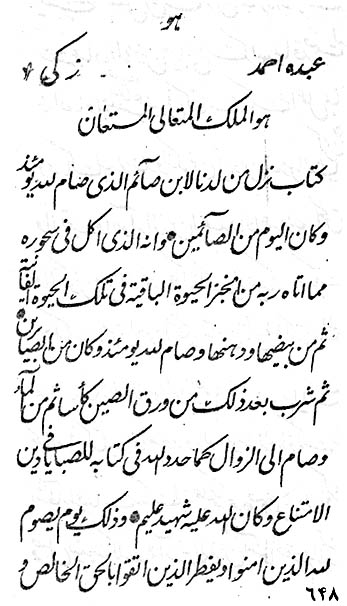 هو
عبده احمد زکی
هو الملک المتعالی المستعان
کتاب نزل من لدنا لابن صائم الذی صام لله یومئذ
و کان الیوم من الصائمین وانه الذی اکل فی سحوره
مما اتاه ربه من الخبز الحیوة الباقیة فی تلک الحیوة الفانیة
ثم من بیضها و دهنها و صام لله یومئذ و کان من الصابرین
ثم شرب بعد ذلک من ورق الصین کأسا ثم من الماء
و صام الی الزوال کما حدد الله فی کتابه للصبایا فی دین
الامتناع و کان الله علیه شهید علیم و ذلک یوم یصوم
لله الذین امنوا و یفطر الذین اتقوا بالحق الخالص و
٦٤٨